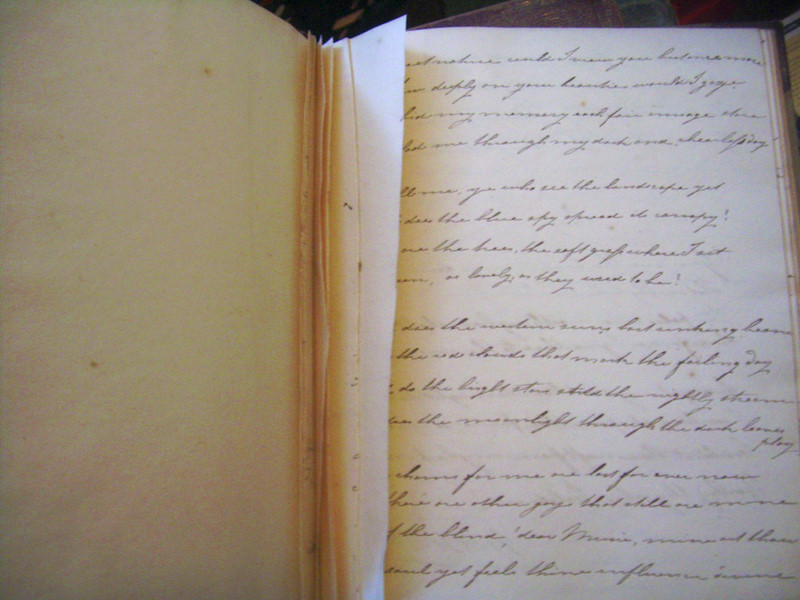 nature could I view you but once more
deeply on your beauties would I gaze
bid my memory each fair image store
me through my dark and cheerless day!
me, ye who see the landscape yet
does the blue sky spread its canopy!
are the trees, the soft grass where I sat
as lovely as they used to be!
does the western sun's last sinking beam
the red clouds that mark the fading day
do the bright stars still the nightly stream
the moonlight through the dark leaves
play
charms for me are lost for ever now
there are other joys that still are mine
the blind, dear Music, mine art thou
soul yet feels thine influence divine